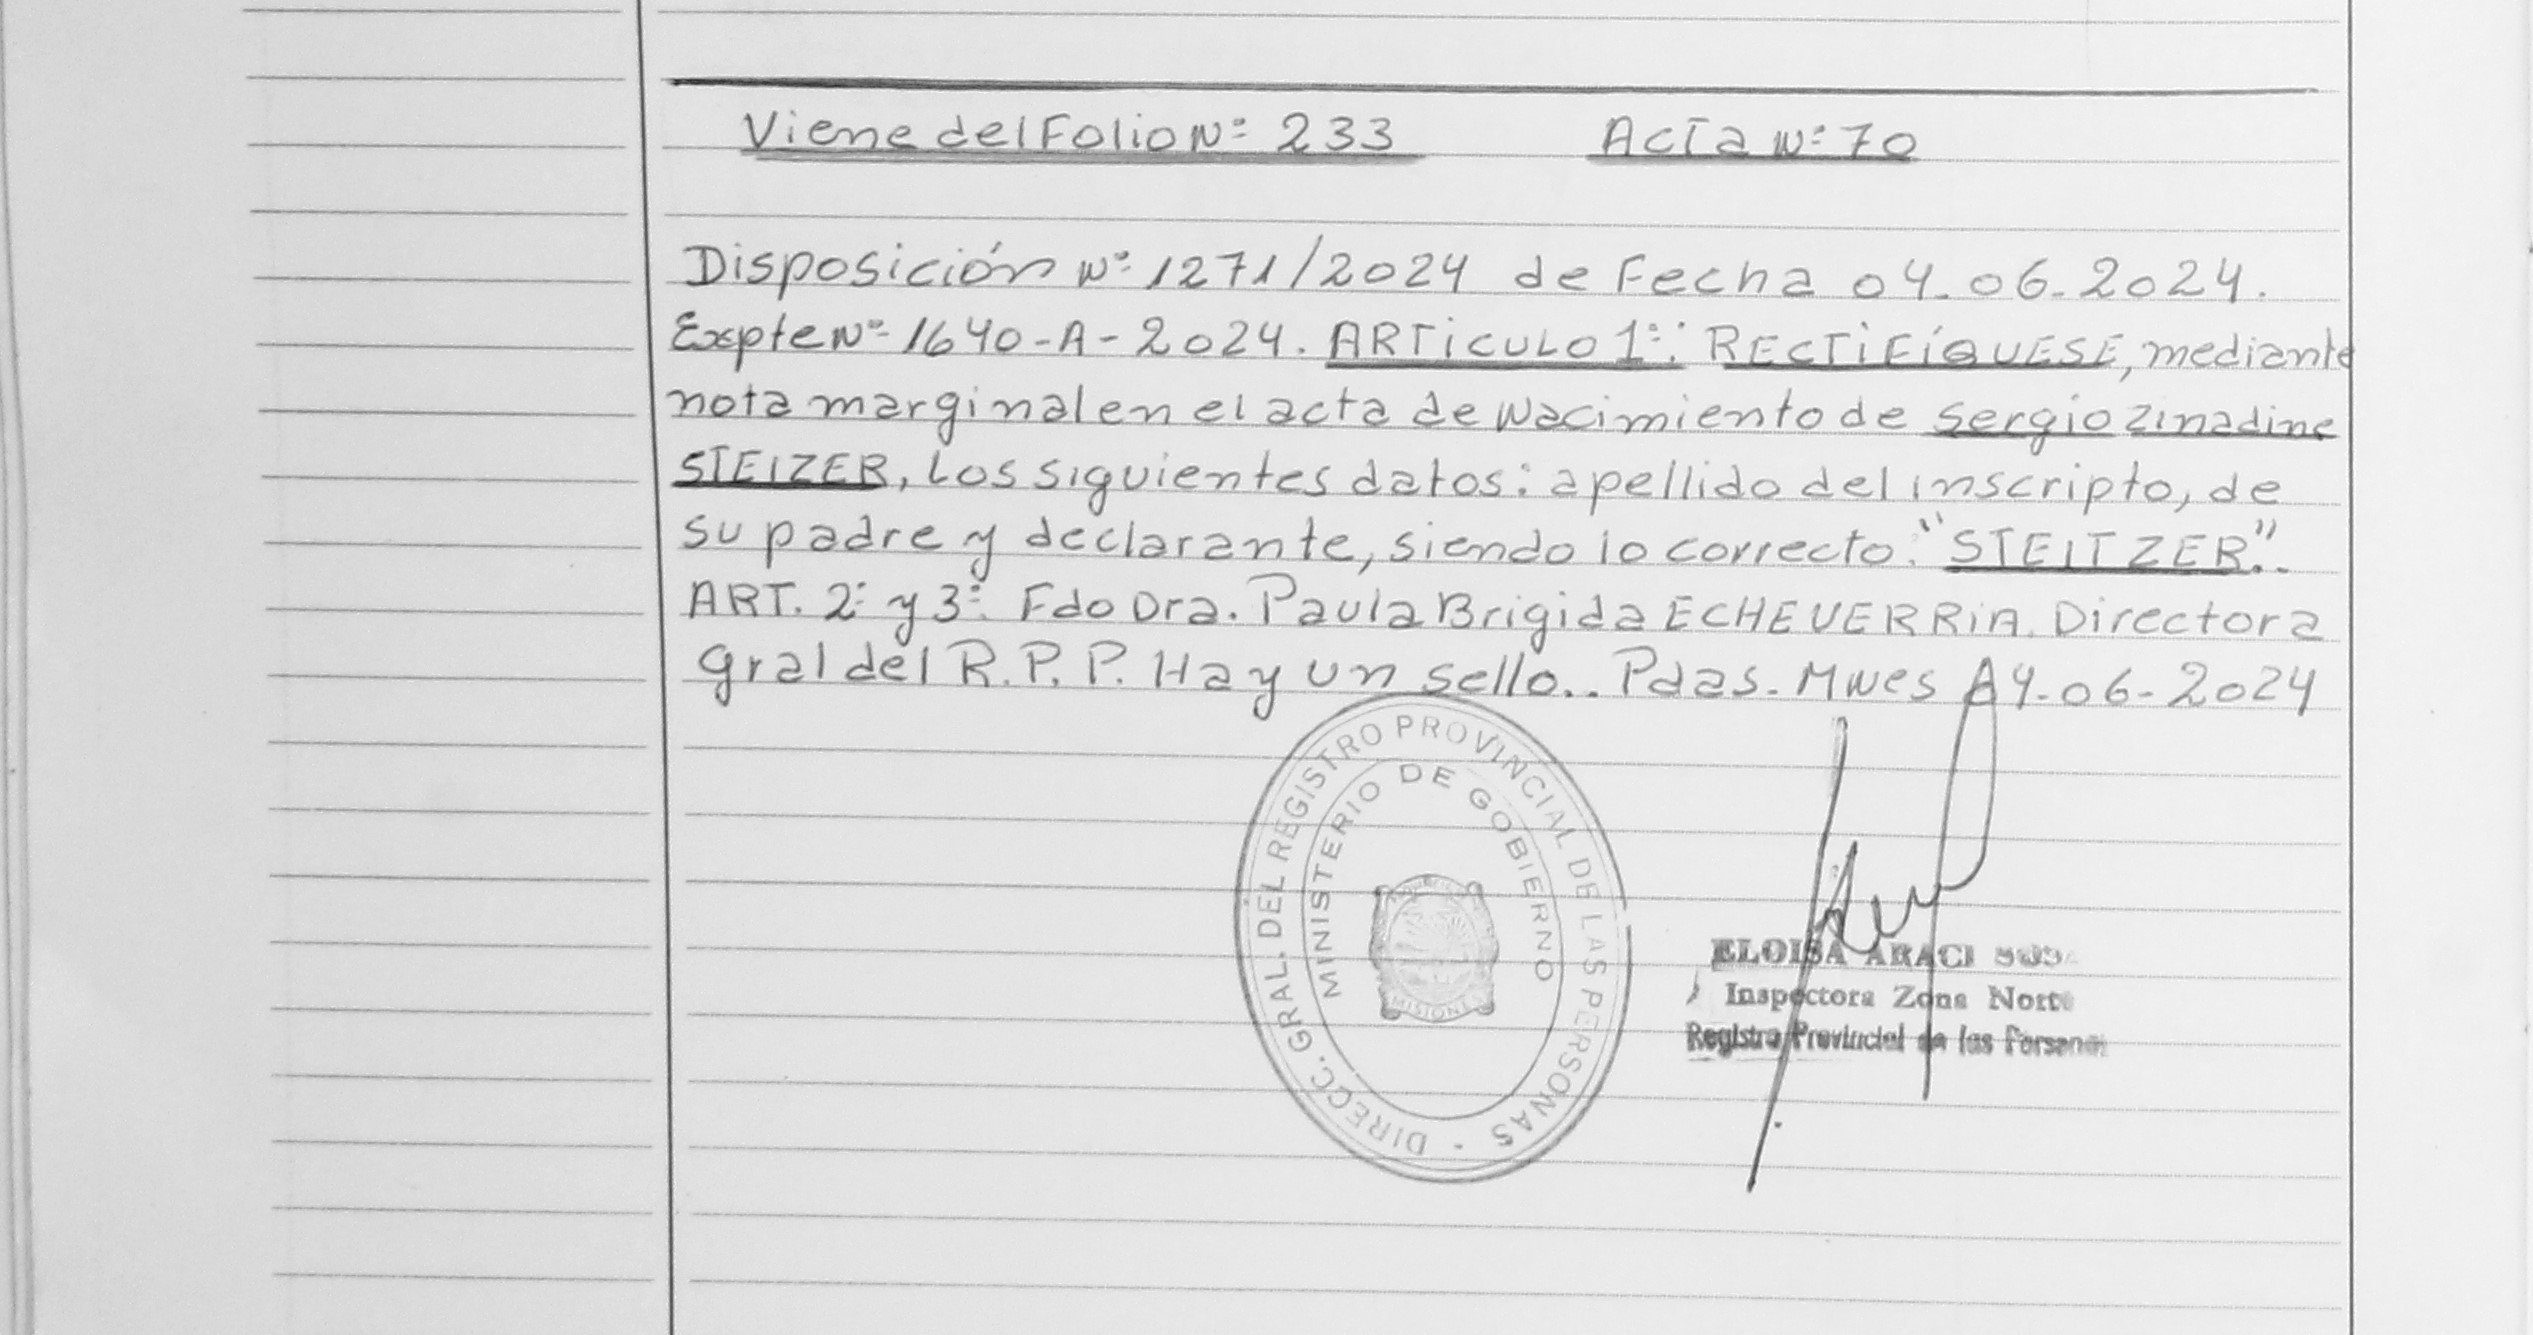 Viene del Folio Nº 233 Acta Nº 70
Disposición Nº 1271/2024 de Fecha 04.06.2024.
Expte Nº 1640-A-2024. ARTICULO 1º: RECTIFÍQUESE, mediante
nota marginal en el acta de Nacimiento de Sergio Zinadine
STEIZER, Los siguientes datos: apellido del inscripto, de
su padre y declarante, siendo lo correcto: "STEITZER".
ART. 2º y 3º. Fdo Dra. Paula Brigida ECHEVERRIA. Directora
Gral del R.P.P. Hay un sello.. Pdas. Mnes 14-06-2024
DIRECC. GRAL. DEL REGISTRO PROVINCIAL DE LAS PERSONAS -
MINISTERIO DE GOBIERNO
MISIONES
ELOISA ARACI
Inspectora Zona Norte
Registro Provincial de las Personas